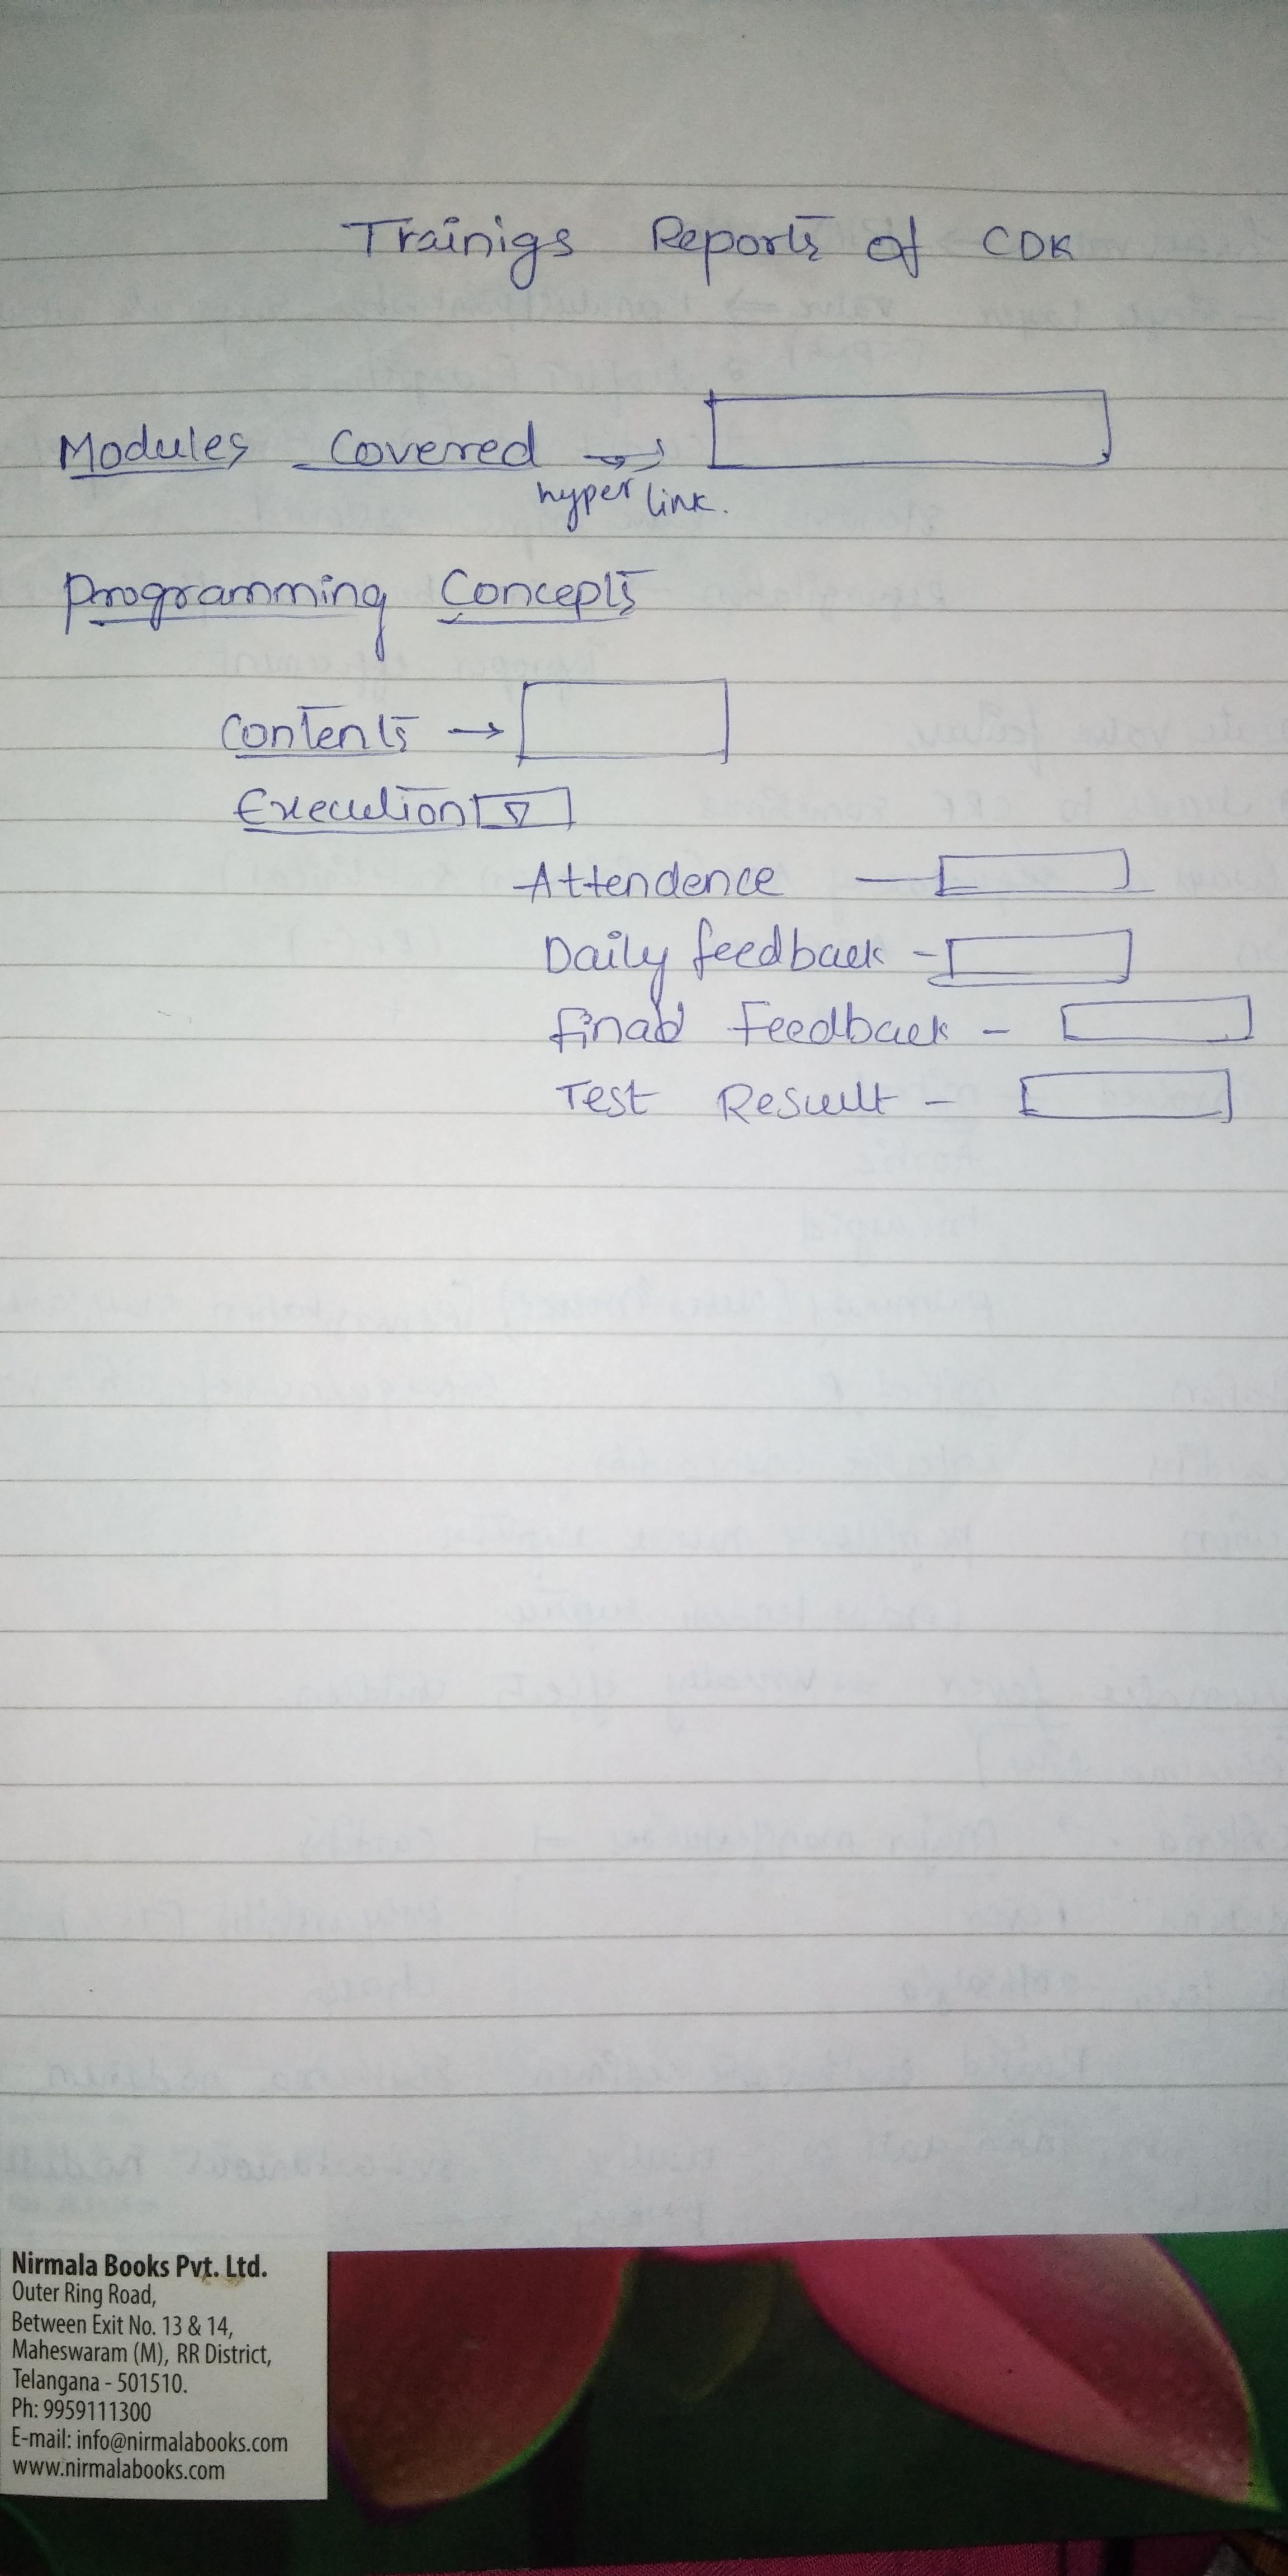 Trainigs Reports of CDK
Modules Covered →
hyper link.
Programming Concepts
Contents →
Execution
Attendence —
Daily feedback -
final Feedback -
Test Result -
Nirmala Books Pvt. Ltd.
Outer Ring Road,
Between Exit No. 13 & 14,
Maheswaram (M), RR District,
Telangana - 501510.
Ph: 9959111300
E-mail: info@nirmalabooks.com
www.nirmalabooks.com